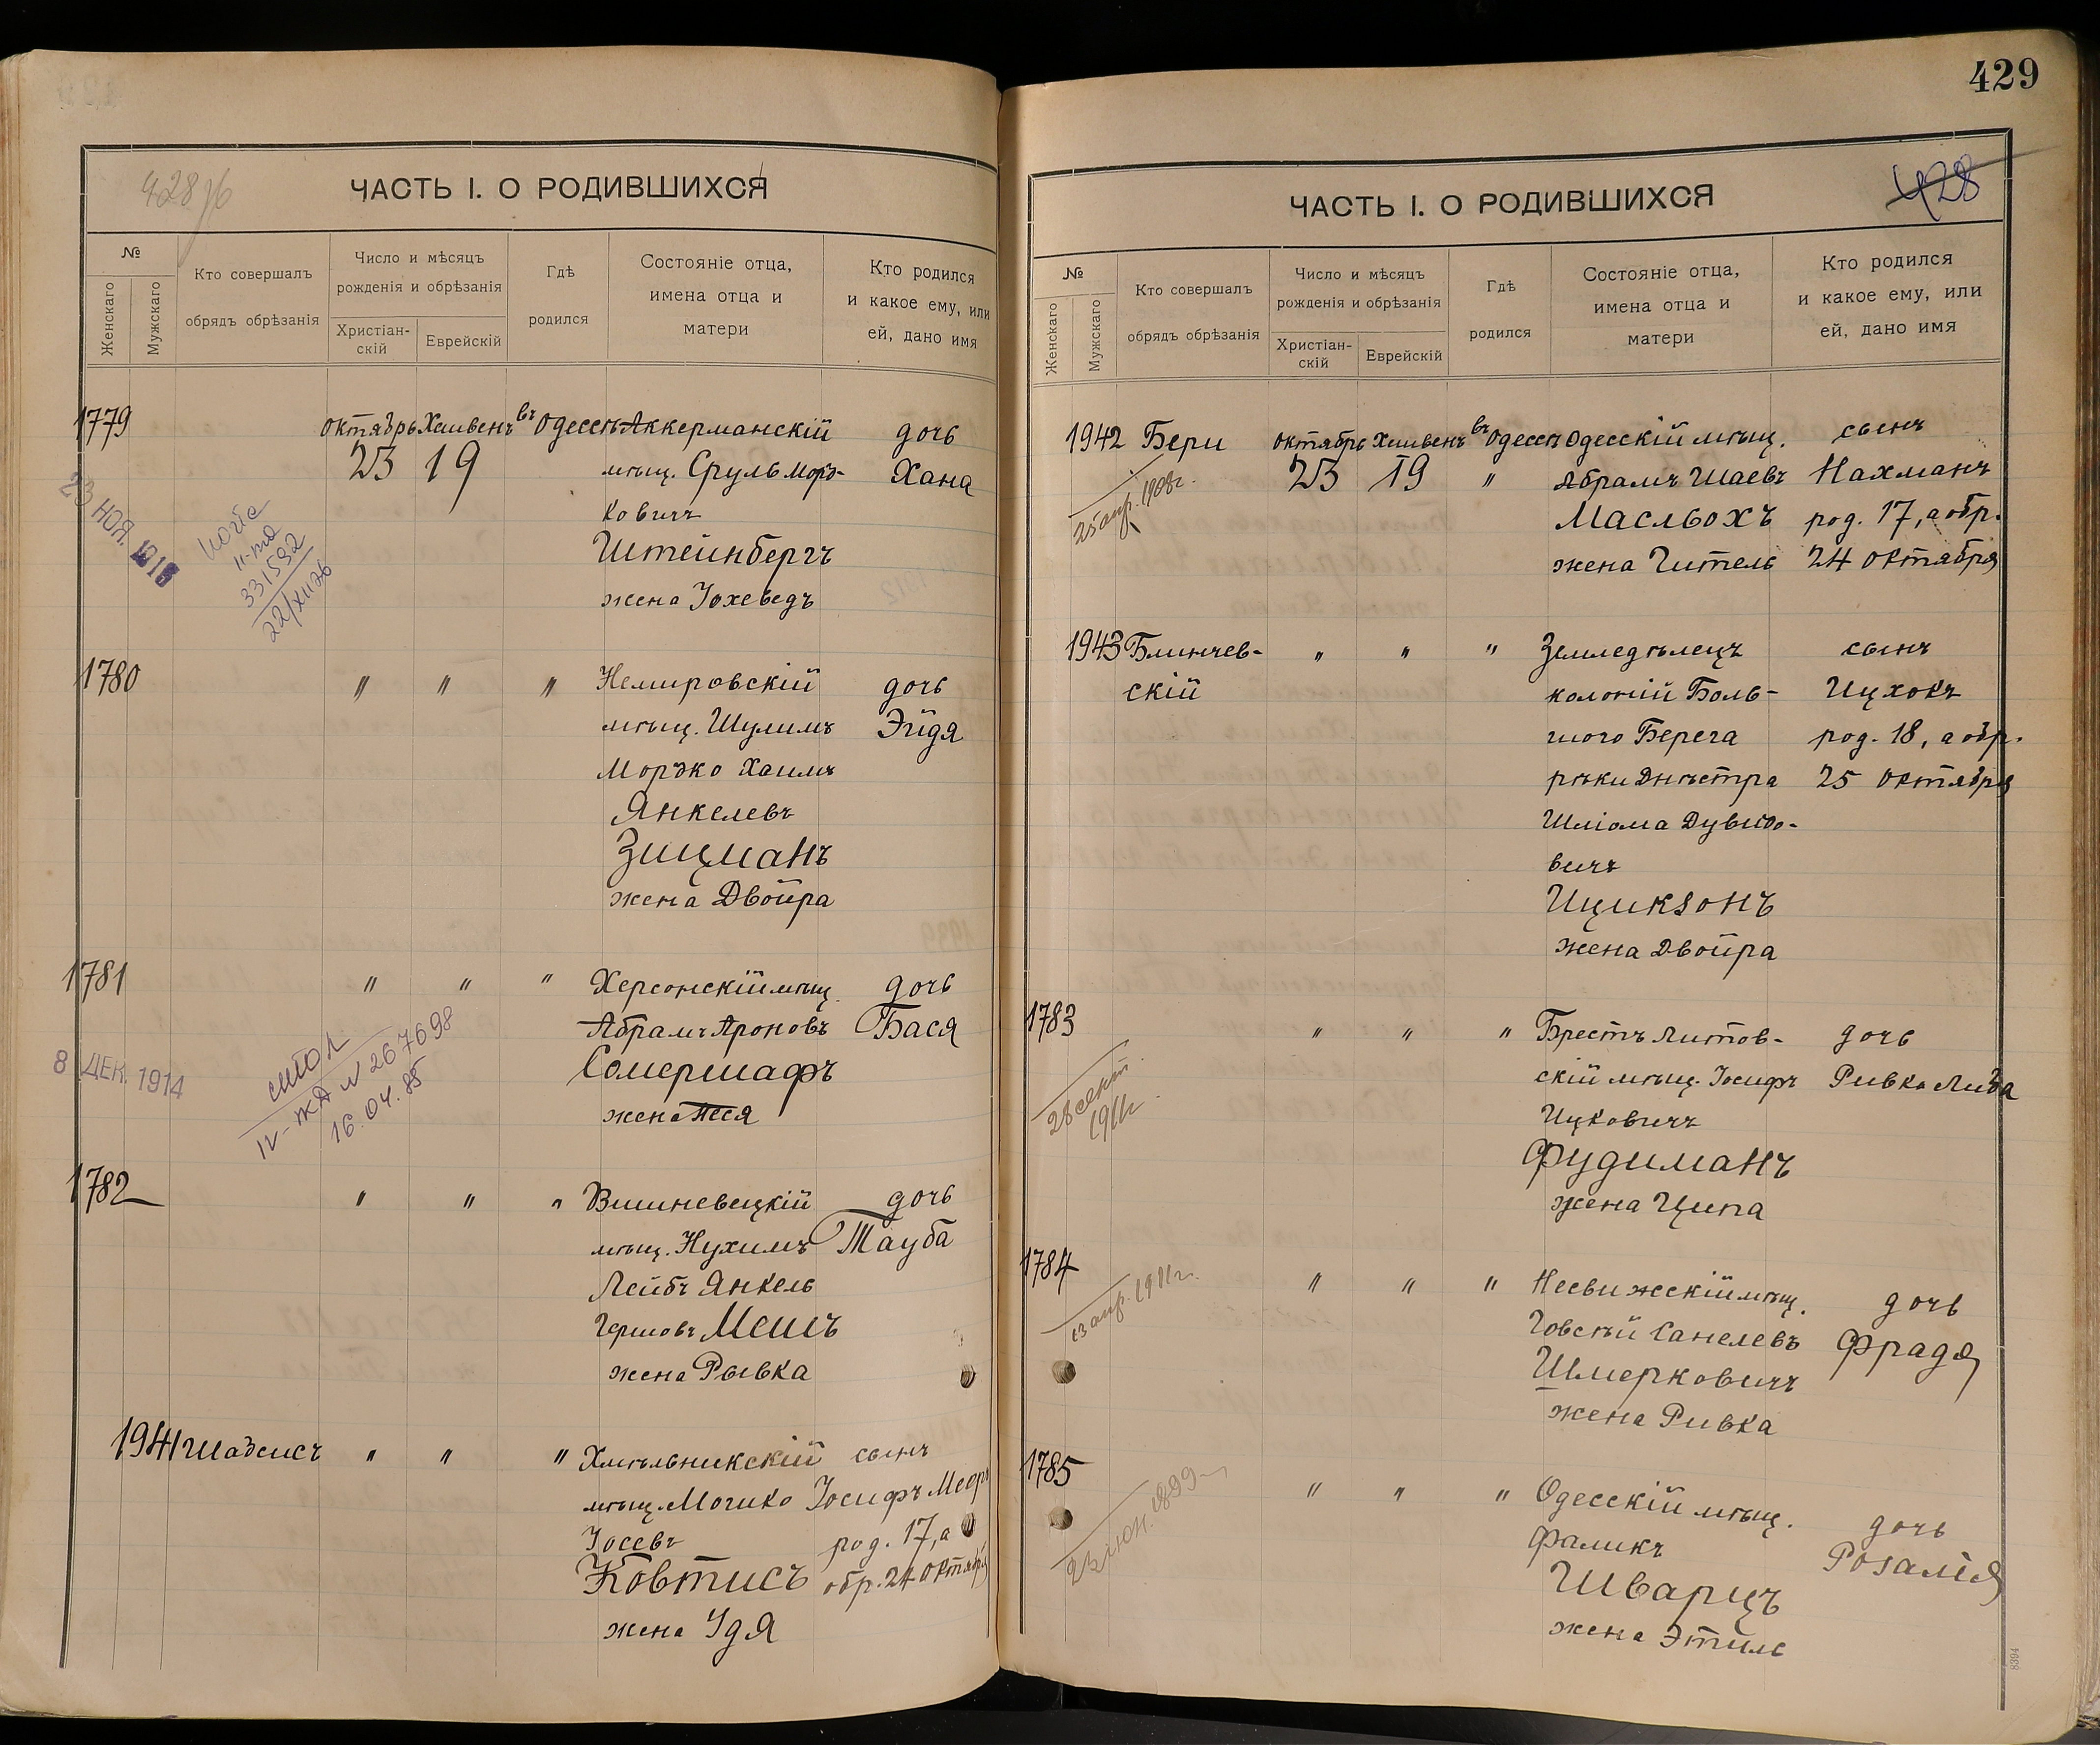 428 об
ЧАСТЬ I. О РОДИВШИХСЯ
№
Женскаго
Мужскаго
Кто совершалъ
обрядъ обрѣзанія
Число и мѣсяцъ
рожденія и обрѣзанія
Христіан-
скій
Еврейскій
Гдѣ
родился
Состояніе отца,
имена отца и
матери
Кто родился
и какое ему, или
ей, дано имя
1779 октябрь Хешвенъ въ Одессѣ Аккерманскій дочь
23 19 мѣщ. Сруль Морд- Хана
ковичъ
Штейнбергъ
жена Іохеведъ
23 НОЯ. 1915
331592
22/XII 26
1780 " " " Немировскій дочь
мѣщ. Шулимъ Эйдя
Мордко Хаимъ
Янкелевъ
Зицманъ
жена Двойра
1781 " " " Херсонскій мѣщ. дочь
Абрамъ Ароновъ Бася
Сомершафъ
жена Песя
8 ДЕК. 1914
IV-ЖД N 267698
16.04.85
1782 " " " Вишневецкій дочь
мѣщ. Нухимъ Тауба
Лейбъ Янкель
Гершовъ Мешъ
жена Рывка
1941 " " " Хмѣльникскій сынъ
мѣщ. Мошко Іосифъ Меер
Іосевъ род. 17, а
Ковтисъ обр. 24 октября
жена Удя
429
428
ЧАСТЬ I. О РОДИВШИХСЯ
№
Женскаго
Мужскаго
Кто совершалъ
обрядъ обрѣзанія
Число и мѣсяцъ
рожденія и обрѣзанія
Христіан-
скій
Еврейскій
Гдѣ
родился
Состояніе отца,
имена отца и
матери
Кто родился
и какое ему, или
ей, дано имя
1942 Бери октябрь Хешвенъ въ Одессѣ Одесскій мѣщ. сынъ
23 19 " Абрамъ Шаевъ Нахманъ
Масльохъ род. 17, а обр.
жена Гитель 24 октября
25 апр. 1908г.
1943 Блинчев- " " " Земледѣлецъ сынъ
скій колоній Боль- Ицхокъ
шого Берега род. 18, а обр.
рѣки Днѣстра 25 октября
Шліома Дувидо-
вичъ
Ициксонъ
жена Двойра
1783 " " " Брестъ Литов- дочь
скій мѣщ. Іосифъ Ривка Либа
Ицковичъ
Фудиманъ
жена Ципа
28 сент.
1911г
1784 " " " Несвижескій мѣщ. дочь
Говсѣй Санелевъ Фрадя
Шмерковичъ
жена Ривка
13 апр. 1911г.
1785 " " " Одесскій мѣщ. дочь
Фаликъ Розалія
Шварцъ
жена Этиль
23 1899
8394